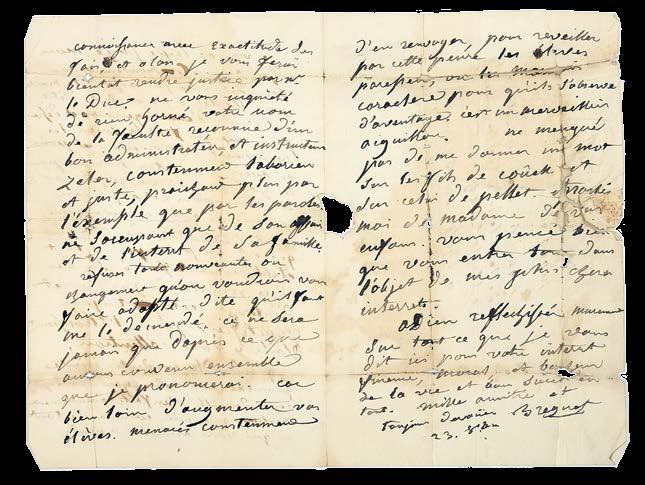 connoissance avec exactitude des
fais et alors je vous ferai
bientôt rendre justice par mr
le Duc. ne vous inquieté
de rien, formé votre nom
de la recommé d'un
bon administrateur, et instructeur
zeler, constenment laborieu
et juste, plus par
l'exemple que par les paroles
ne s'occupant que de son affair
et de l'interet de sa famille
refuser toute nouveautés ou
changement qu'on voudroit vous
faire adopté dite qu'il faut
me le demandé. ce ne sera
jamais que d'après ce que
aurons convenu ensemble
que je prononcerai. car
bien loin d'augmenter vos
élèves. menacés constenment
d'en renvoyer, pour reveiller
par cette peure les élèves
paresseu, ou les mauvais
caractere pour qu'ils s'observe
d'aventage, c'est un merveilleu
aiguillon. ne menqué
pas de me donner un mot
sur les fils de couëk et
sur celui de pellet
moi de madame de vos
enfans. vous pencé bien
que vous entrer tous dans
l'objet de mes plus chers
interrets.
adieu reflechissés murement
sur tout ce que je vous
dit ici pour votre interet
moral, et bonheur
de la vie et bon succes en
tout. mille amitiés et
toujour devoüer Breguet
23. 8bre